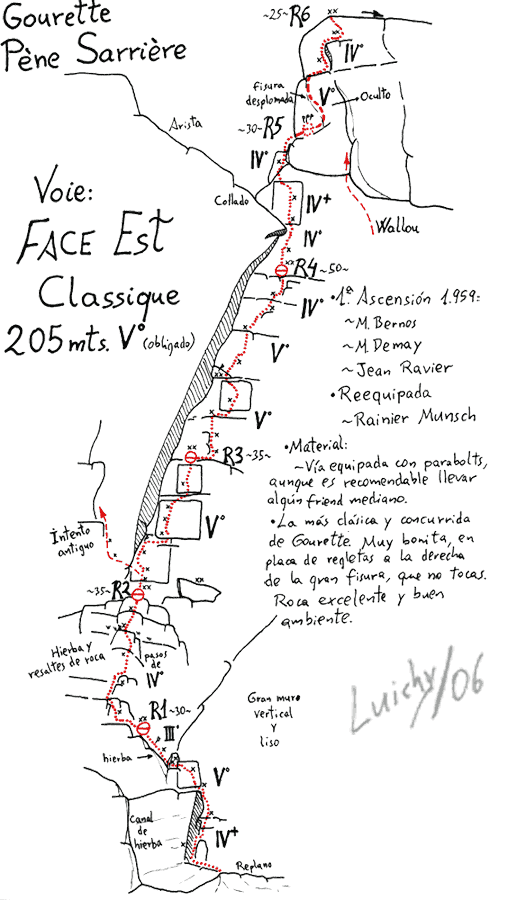 Gourette
Pène Sarrière
~25~ R6
IV°
fisura
desplomada
V°
Oculto
Arista
~30~ R5
IV°
Voie:
FACE EST
Classique
205mts. V° (obligado)
Collado
IV+
IV°
Wallou
R4 ~50~
IV°
•1ª Ascensión 1.959:
~M. Bernos
~M. Demay
~Jean Ravier
•Reequipada
~Rainier Munsch
V°
V°
•Material:
~Vía equipada con parabolts,
aunque es recomendable llevar
algún friend mediano.
•La más clásica y concurrida
de Gourette. Muy bonita, en
placa de regletas a la derecha
de la gran fisura, que no tocas.
Roca excelente y buen
ambiente.
R3 ~35~
V°
Intento
antiguo
~35~ R2
Hierba y
resaltes de roca
pasos
de
IV°
R1 ~30~
III°
Gran muro
vertical
y
liso
Luichy/06
hierba
V°
Canal
de
hierba
IV+
Replano